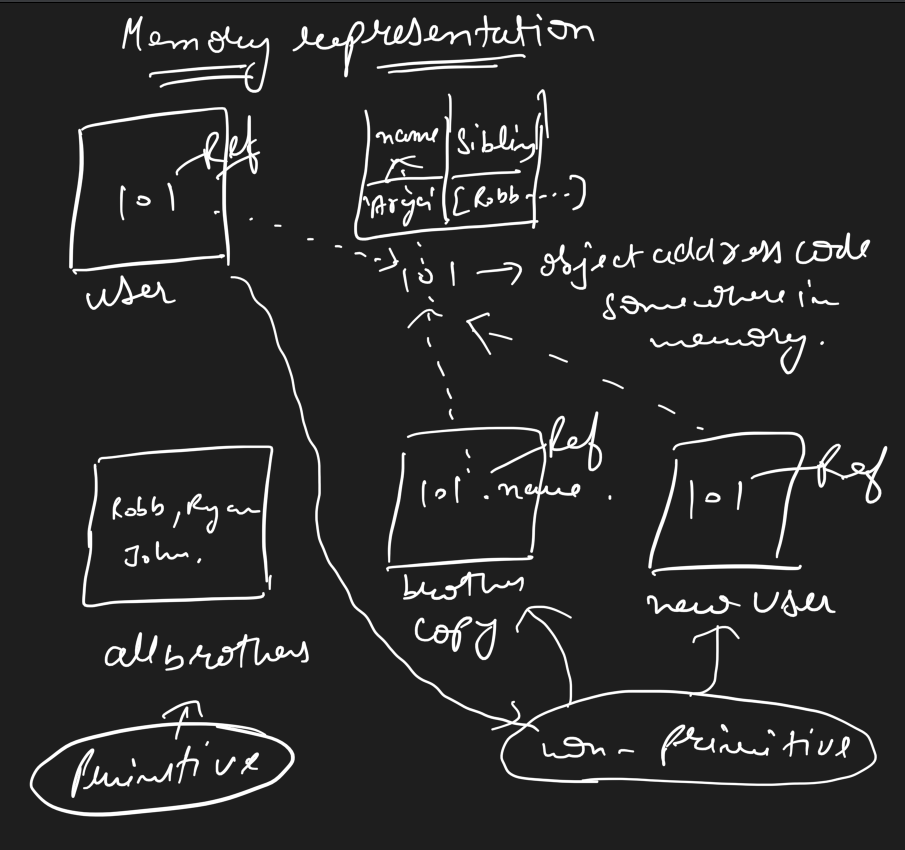 Memory representation
Ref
101
user
name
Sibling
'Arya'
[Robb....]
101 → object address code
somewhere in
memory.
Robb, Ryan
John.
all brothers
Primitive
Ref
101.name.
brother
copy
Ref
101
new User
non-primitive